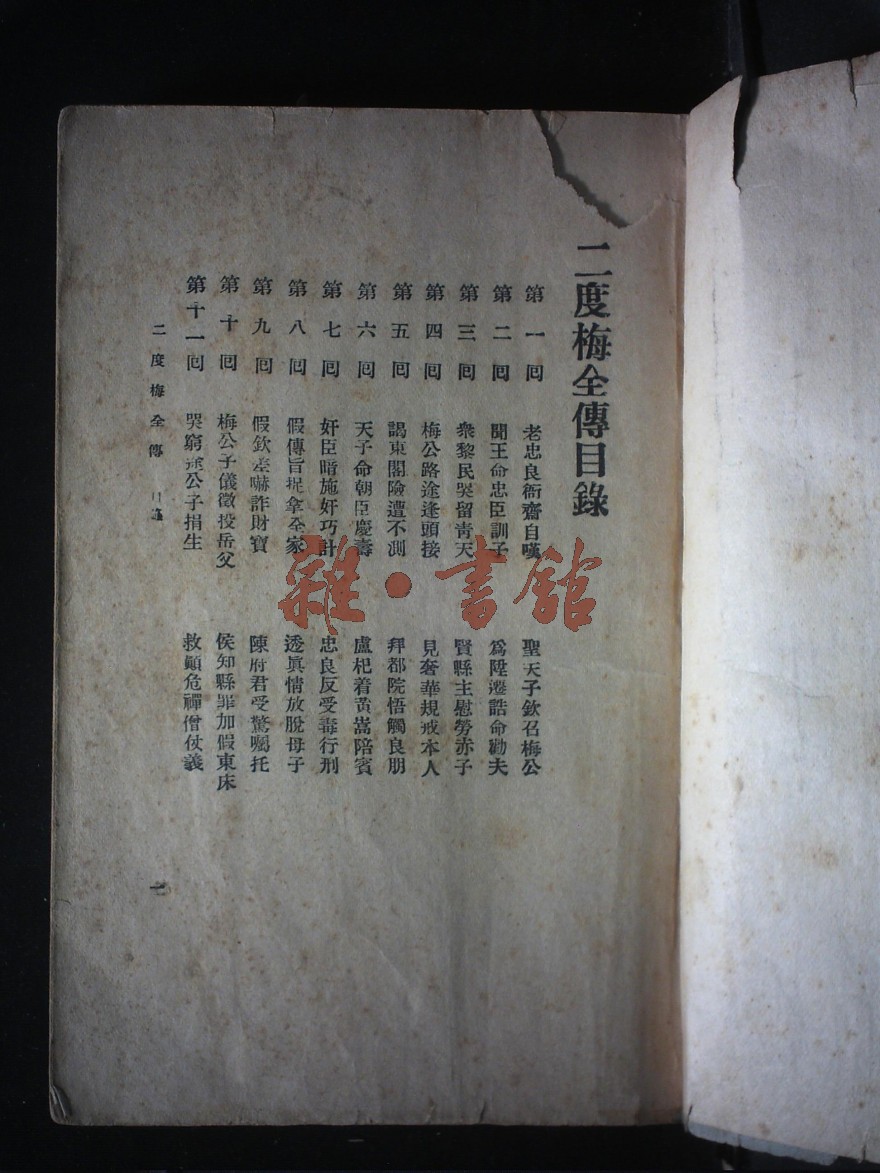 二度梅全傳目錄
第一囘 老忠良衙齋自嘆 聖天子欽召梅公
第二囘 聞王命忠臣訓子 爲陞遷誥命勸夫
第三囘 衆黎民哭留靑天 賢縣主慰勞赤子
第四囘 梅公路途逢頭接 見奢華規戒本人
第五囘 謁東閣險遭不測 拜都院悟觸良朋
第六囘 天子命朝臣慶壽 盧杞着黃嵩陪賓
第七囘 奸臣暗施奸巧計 忠良反受毒行刑
第八囘 假傳旨捉拿全家 透眞情放脫母子
第九囘 假欽差嚇詐財寶 陳府君受驚囑托
第十囘 梅公子儀徵投岳父 侯知縣罪加假東床
第十一囘 哭窮途公子捐生 救顚危禪僧仗義
二度梅全傳
一
雜·書館